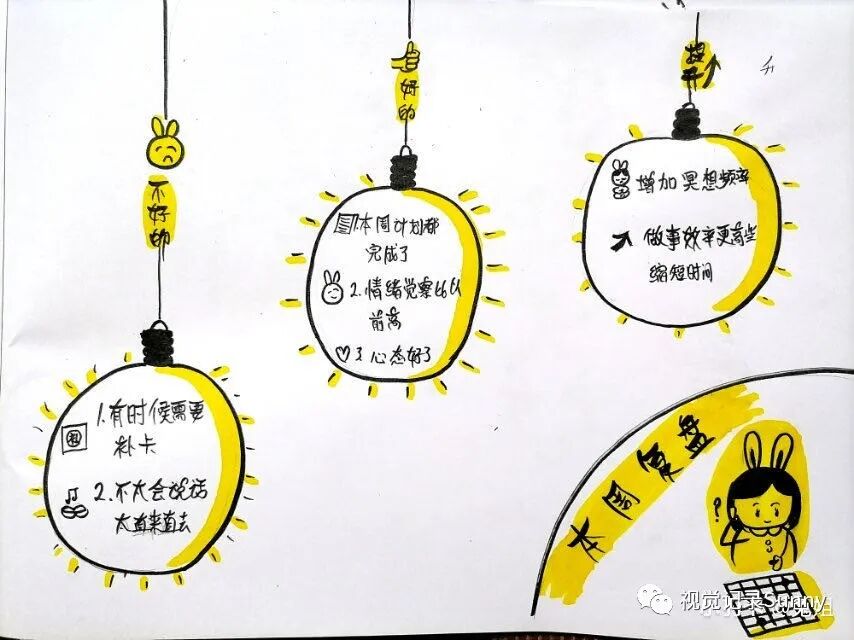 不好的
1.有时候需要
补卡
2.不太会说话
太直来直去
好的
本周计划都
完成了
2.情绪觉察比以
前高
3 心态好了
提升
增加冥想频率
做事效率更高些
缩短时间
本周复盘
?
视觉记录Sunny